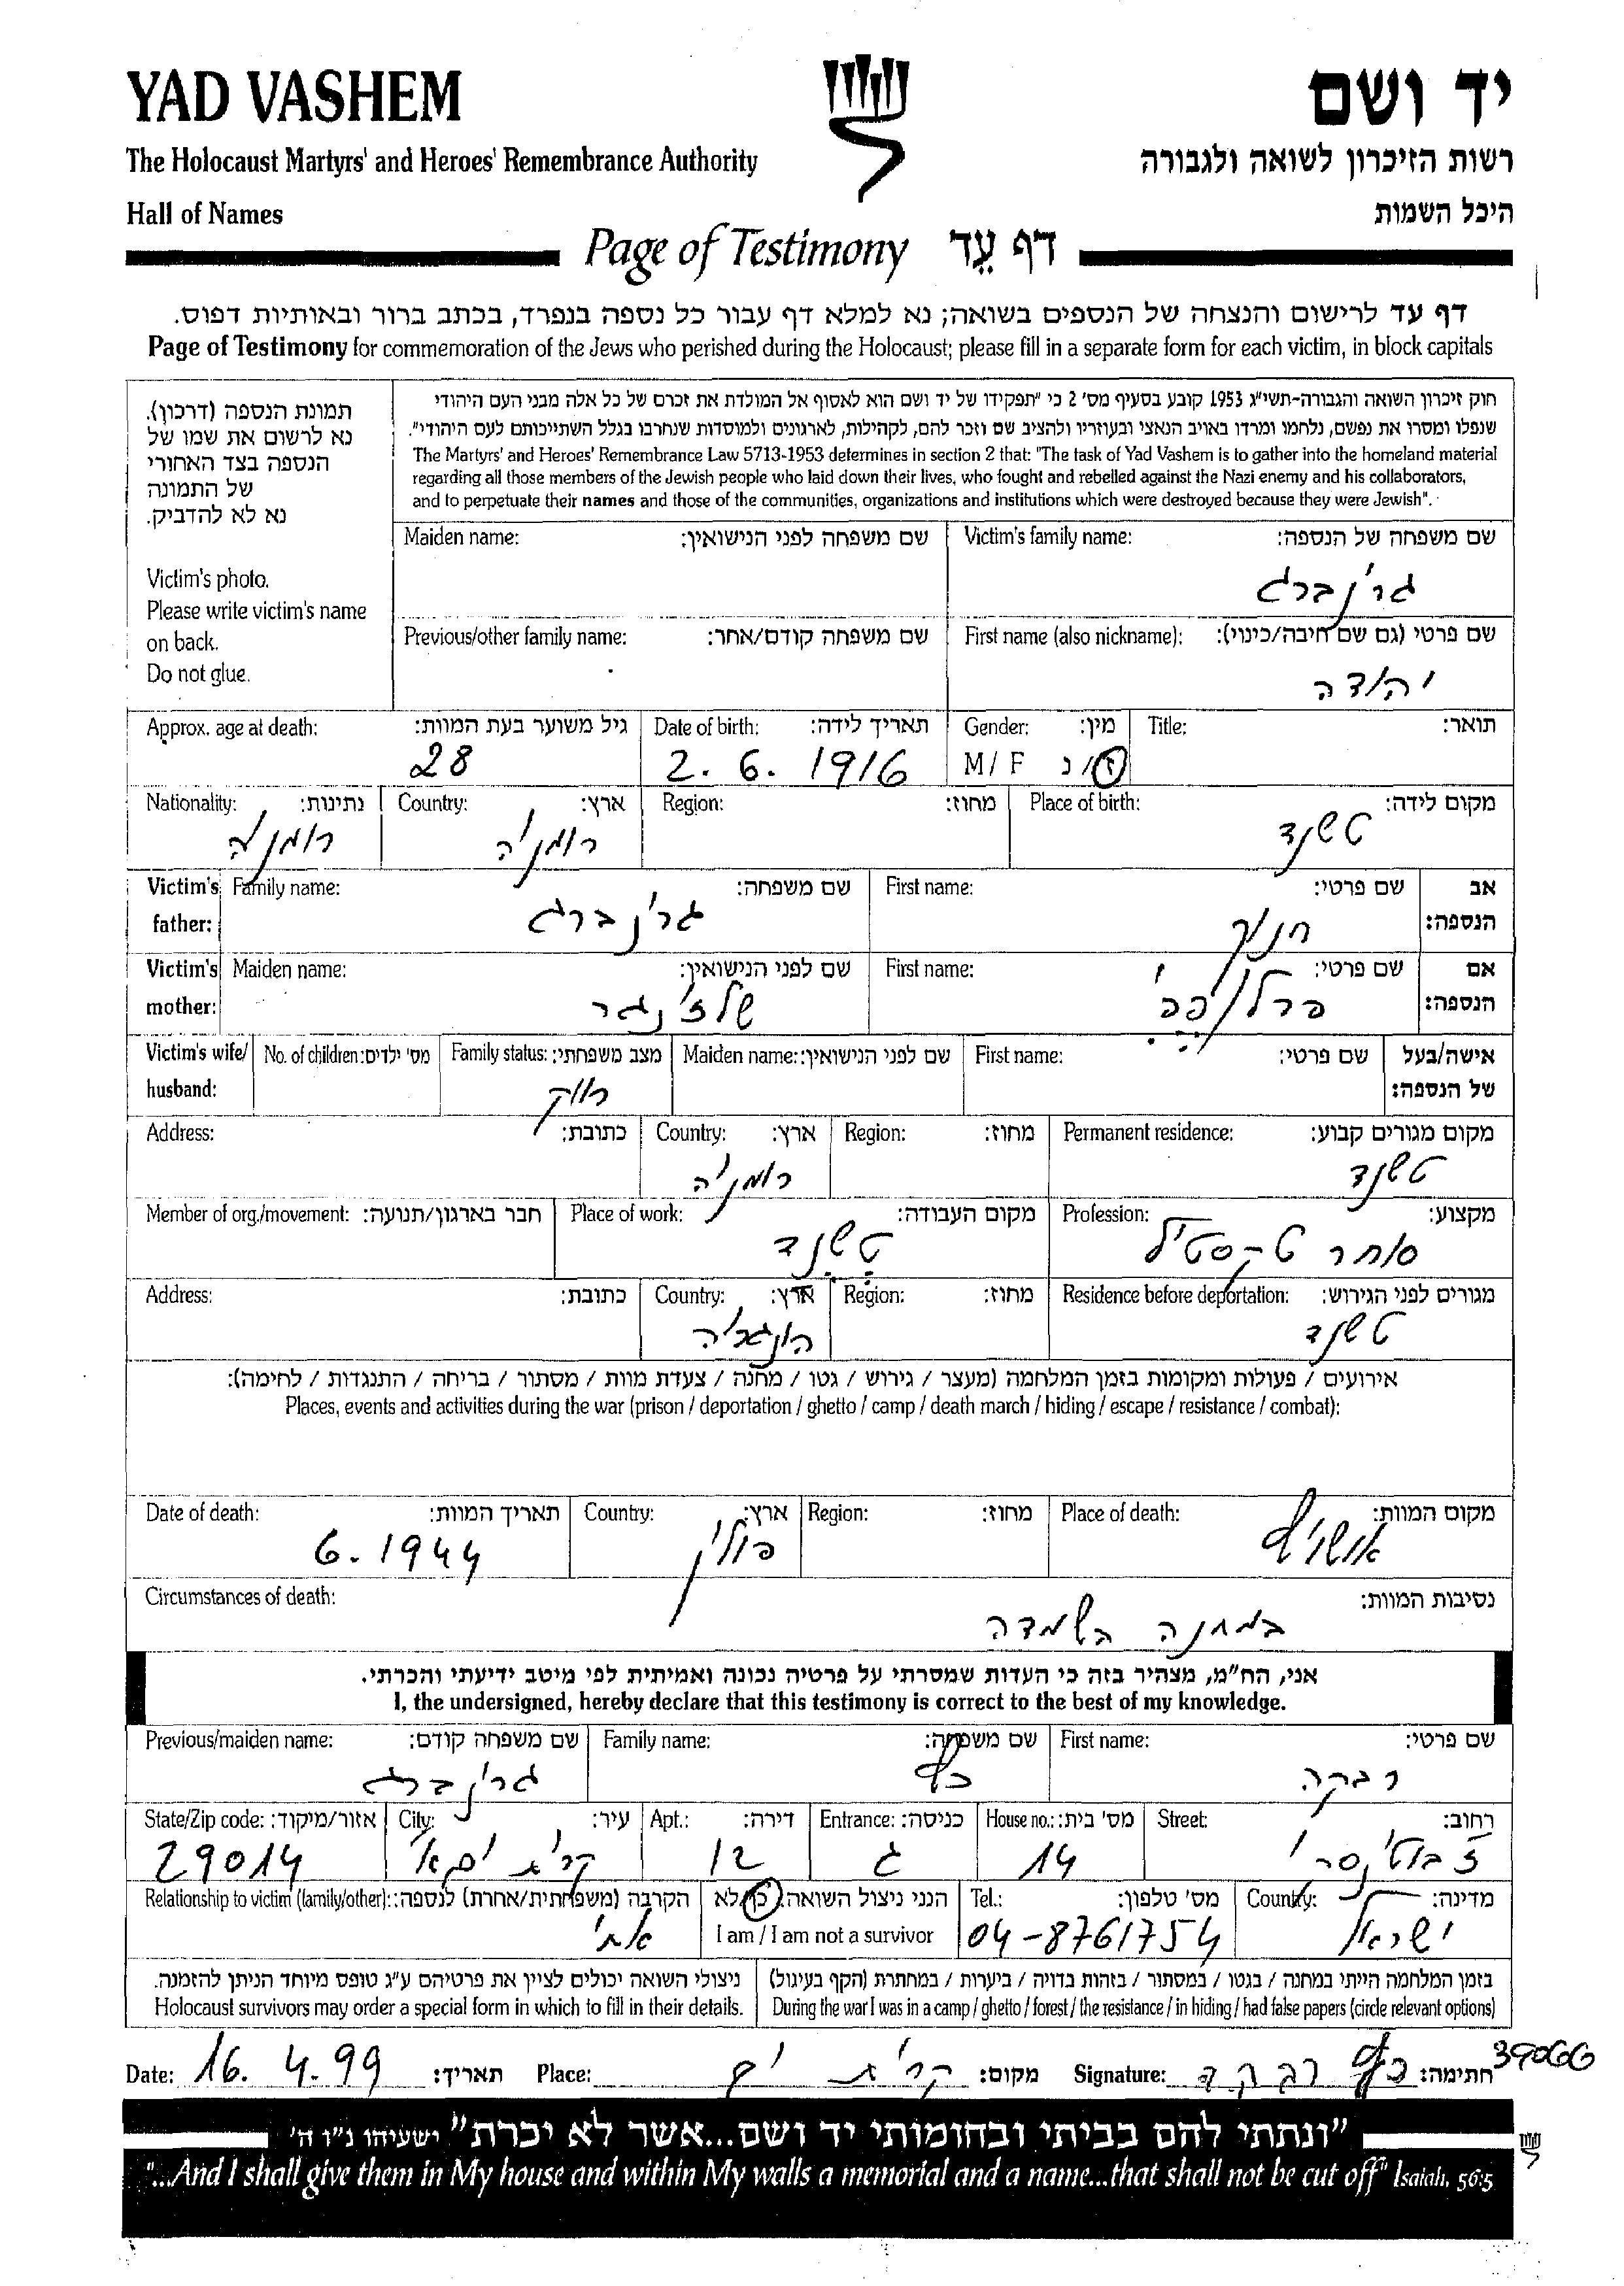 YAD VASHEM
יד ושם
The Holocaust Martyrs' and Heroes' Remembrance Authority
רשות הזיכרון לשואה ולגבורה
Hall of Names
היכל השמות
Page of Testimony דף עֵד
דף עד לרישום והנצחה של הנספים בשואה; נא למלא דף עבור כל נספה בנפרד, בכתב ברור ובאותיות דפוס.
Page of Testimony for commemoration of the Jews who perished during the Holocaust; please fill in a separate form for each victim, in block capitals
תמונת הנספה (דרכון).
נא לרשום את שמו של
הנספה בצד האחורי
של התמונה
נא לא להדביק.
Victim's photo.
Please write victim's name
on back.
Do not glue.
חוק זיכרון השואה והגבורה-תשי"ג 1953 קובע בסעיף מס' 2 כי "תפקידו של יד ושם הוא לאסוף אל המולדת את זכרם של כל אלה מבני העם היהודי
שנפלו ומסרו את נפשם, נלחמו ומרדו באויב הנאצי ובעוזריו ולהציב שם וזכר להם, לקהילות, לארגונים ולמוסדות שנחרבו בגלל השתייכותם לעם היהודי".
The Martyrs' and Heroes' Remembrance Law 5713-1953 determines in section 2 that: "The task of Yad Vashem is to gather into the homeland material
regarding all those members of the Jewish people who laid down their lives, who fought and rebelled against the Nazi enemy and his collaborators,
and to perpetuate their names and those of the communities, organizations and institutions which were destroyed because they were Jewish".
Victim's family name: שם משפחה של הנספה:
גרינברג
Maiden name: שם משפחה לפני הנישואין:
First name (also nickname): שם פרטי (גם שם חיבה/כינוי):
יהודה
Previous/other family name: שם משפחה קודם/אחר:
Title: תואר:
Gender: מין:
M / F ז/נ
Date of birth: תאריך לידה:
2. 6. 1916
Approx. age at death: גיל משוער בעת המוות:
28
Place of birth: מקום לידה:
טשנד
Region: מחוז:
Country: ארץ:
רומניה
Nationality: נתינות:
רומניה
Victim's father: אב הנספה:
First name: שם פרטי:
חנוך
Family name: שם משפחה:
גרינברג
Victim's mother: אם הנספה:
First name: שם פרטי:
Maiden name: שם לפני הנישואין:
שלזינגר
Victim's wife/ husband: אישה/בעל של הנספה:
First name: שם פרטי:
Maiden name: שם לפני הנישואין:
Family status: מצב משפחתי:
רווק
No. of children: מס' ילדים:
Permanent residence: מקום מגורים קבוע:
טשנד
Region: מחוז:
Country: ארץ:
רומניה
Address: כתובת:
Profession: מקצוע:
סוחר טקסטיל
Place of work: מקום העבודה:
טשנד
Member of org./movement: חבר בארגון/תנועה:
Residence before deportation: מגורים לפני הגירוש:
טשנד
Region: מחוז:
Country: ארץ:
הונגריה
Address: כתובת:
אירועים / פעולות ומקומות בזמן המלחמה (מעצר / גירוש / גטו / מחנה / צעדת מוות / מסתור / בריחה / התנגדות / לחימה):
Places, events and activities during the war (prison / deportation / ghetto / camp / death march / hiding / escape / resistance / combat):
Place of death: מקום המוות:
אושויץ
Region: מחוז:
Country: ארץ:
פולין
Date of death: תאריך המוות:
6. 1944
Circumstances of death: נסיבות המוות:
במחנה השמדה
אני, הח"מ, מצהיר בזה כי העדות שמסרתי על פרטיה נכונה ואמיתית לפי מיטב ידיעתי והכרתי.
I, the undersigned, hereby declare that this testimony is correct to the best of my knowledge.
First name: שם פרטי:
רבקה
Family name: שם משפחה:
כץ
Previous/maiden name: שם משפחה קודם:
גרינברג
Street: רחוב:
ז'בוטינסקי
House no.: מס' בית:
14
Entrance: כניסה:
ג
Apt.: דירה:
12
City: עיר:
קרית ים
State/Zip code: אזור/מיקוד:
29014
Country: מדינה:
ישראל
Tel.: מס' טלפון:
04-8761754
הנני ניצול השואה: כן/לא
I am / I am not a survivor
Relationship to victim (family/other): הקרבה (משפחתית/אחרת) לנספה:
אחי
בזמן המלחמה הייתי במחנה / בגטו / במסתור / בזהות בדויה / ביערות / במחתרת (הקף בעיגול)
During the war I was in a camp / ghetto / forest / the resistance / in hiding / had false papers (circle relevant options)
ניצולי השואה יכולים לציין את פרטיהם ע"ג טופס מיוחד הניתן להזמנה.
Holocaust survivors may order a special form in which to fill in their details.
39066
Date: 16. 4. 99 תאריך: Place: קרית ים מקום: Signature: כץ רבקה חתימה:
"ונתתי להם בביתי ובחומותי יד ושם...אשר לא יכרת" ישעיהו נ"ו ה'
"...And I shall give them in My house and within My walls a memorial and a name...that shall not be cut off" Isaiah, 56:5